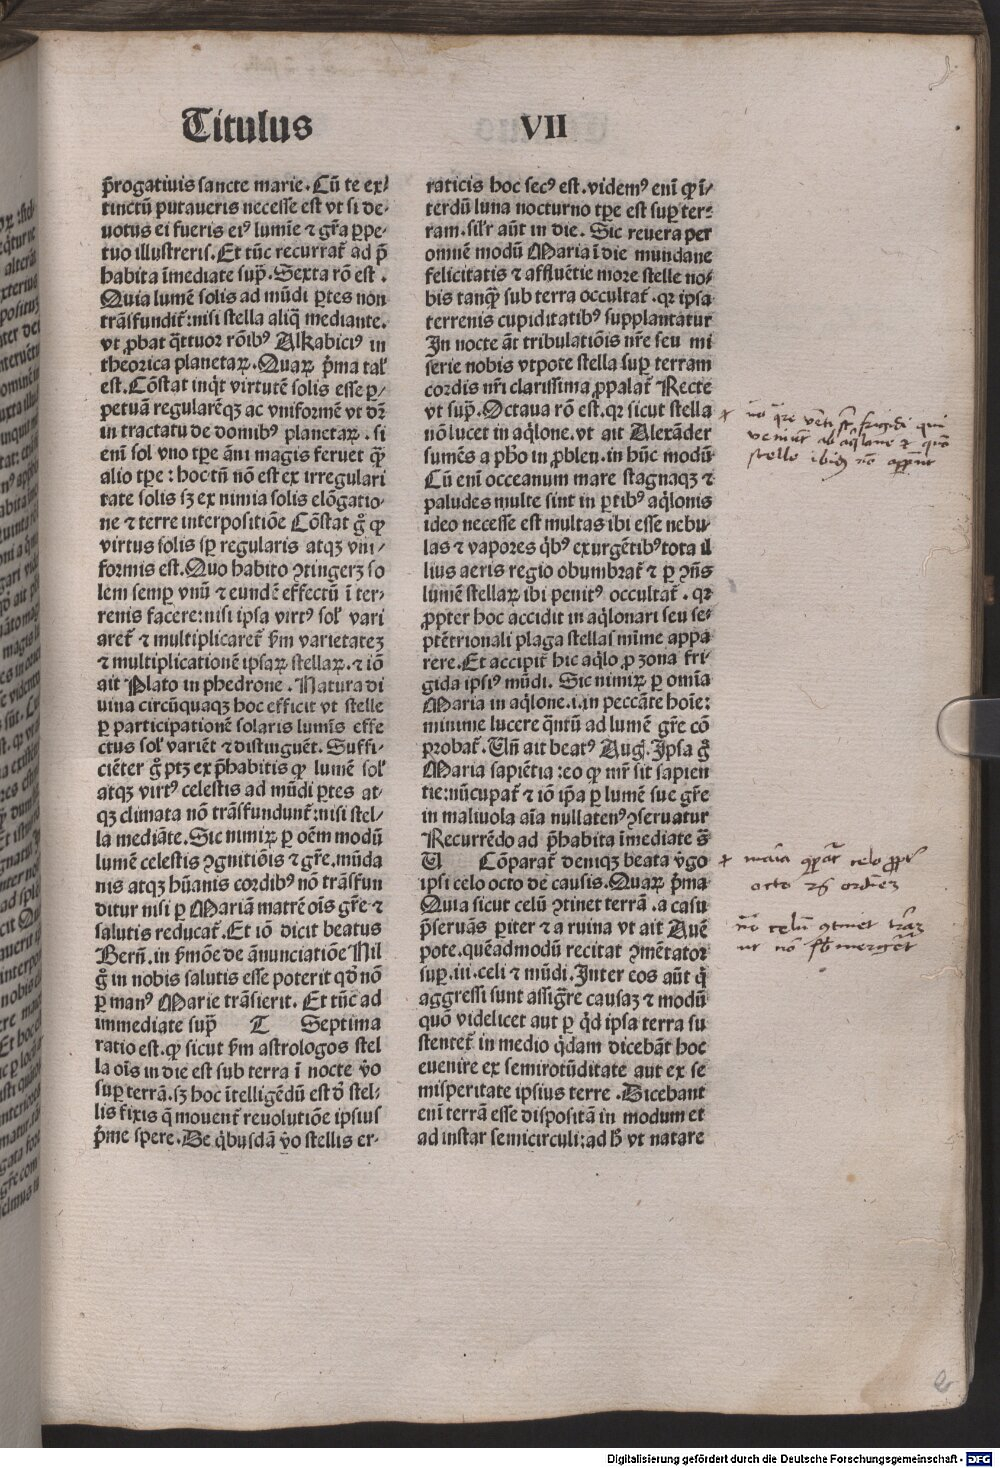 Titulus VII
p̄rogatiuis sancte marie. Cū te ex/
tinctū putaueris necesse est vt si de-
uotus ei fueris eiꝰ lumīe ⁊ gr̄a ꝑpe-
tuo illustreris. Et tūc recurrat̄ ad p̄
habita īmediate sup̄. Sexta rō est .
Quia lumē solis ad mūdi ꝑtes non
trāsfundit̄: nisi stella aliq̄ mediante.
vt ꝓbat q̄ttuor rōibꝰ Alkabiciꝰ in
theorica planetaꝝ. Quaꝝ p̄ma tal'
est. Cōstat inq̇t virtutē solis esse ꝑ/
petuā regularēqꝫ ac vniformē vt dr̄
in tractatu de domibꝰ planetaꝝ. si
enī sol vno tꝑe āni magis feruet q̄ꝫ
alio tꝑe: hoc tn̄ nō est ex irregulari
tate solis sꝫ ex nimia solis elōgatio-
ne ⁊ terre interpositiōe Cōstat g̊ ꝙ
virtus solis sꝑ regularis atqꝫ vni/
formis est. Quo habito ꝯtingerꝫ so
lem semꝑ vnū ⁊ eundē effectū ī ter-
renis facere: nisi ipsa virtꝰ sol' vari
aret̄ ⁊ multiplicaret̄ ẜm varietatez
⁊ multiplicationē ipsaꝝ stellaꝝ. ⁊ iō
ait Plato in phedrone . Natura di
uina circūquaqꝫ hoc efficit vt stelle
ꝑ participationē solaris lumīs effe
ctus sol' variēt ⁊ distinguēt. Suffi-
ciēter g̊ ptꝫ ex p̄habitis ꝙ lumē sol'
atqꝫ virtꝰ celestis ad mūdi ꝑtes at-
qꝫ climata nō trāsfundunt̄: nisi stel-
la mediāte. Sic nimiꝝ ꝑ oēm modū
lumē celestis ꝯgnitiōis ⁊ gr̄e. mūda
nis atqꝫ hūanis cordibꝰ nō trāsfun
ditur nisi ꝑ Mariā matrē oīs gr̄e ⁊
salutis reducat̄. Et iō dicit beatus
Bern̄. in ẜmōe de ānunciatiōe Nil
g̊ in nobis salutis esse poterit qd̄ nō
ꝑ manꝰ Marie trāsierit. Et tūc ad
immediate sup̄ T Septima
ratio est. ꝙ sicut ẜm astrologos stel
la oīs in die est sub terra ī nocte v̊o
suꝑ terrā. sꝫ hoc ītelligēdū est d̄ stel-
lis fixis q̄ mouent̄ reuolutiōe ipsius
p̄me spere. De q̇busdā v̊o stellis er-
raticis hoc secꝰ est. videmꝰ enī ꝙ ī/
terdū luna nocturno tꝑe est suꝑ ter-
ram. sil'r aūt in die. Sic reuera per
omnē modū Maria ī die mundane
felicitatis ⁊ affluētie more stelle no/
bis tanq̄ꝫ sub terra occultat̄. qꝛ ipsa
terrenis cupiditatibꝰ supplantatur
In nocte āt tribulatiōis nr̄e seu mi
serie nobis vtpote stella suꝑ terram
cordis nr̄i clarissima ꝓpalat̄ Recte
vt sup̄. Octaua rō est. qꝛ sicut stella
nō lucet in aq̇lone. vt ait Alexāder
sumēs a ph̄o in ꝓbleu. in hūc modū
Cū enī occeanum mare stagnaqꝫ ⁊
paludes multe sint in ꝑtibꝰ aq̇lonis
ideo necesse est multas ibi esse nebu/
las ⁊ vapores q̇bꝰ exurgētibꝰ tota il
lius aeris regio obumbrat̄ ⁊ ꝑ ꝯn̄s
lumē stellaꝝ ibi penitꝰ occultat̄ . qꝛ
ꝓpter hoc accidit in aq̇lonari seu se-
ptētrionali plaga stellas mīme appa
rere. Et accipit̄ hic aq̇lo ꝓ zona fri-
gida ipsiꝰ mūdi. Sic nimiꝝ ꝑ omīa
Maria in aq̇lone. i. in peccāte hoīe:
minime lucere q̄ntū ad lumē gr̄e cō
probat̄. Vn̄ ait beatꝰ Auḡ. Ipsa g̊
Maria sapiētia: eo ꝙ mr̄ sit sapien
tie: nūcupat̄ ⁊ iō ip̄a ꝑ lumē sue gr̄e
in maliuola aīa nullatenꝰ ꝯseruatur
Recurrēdo ad p̄habita īmediate s̄
V Cōparat̄ deniqꝫ beata v̄go
ipsi celo octo de causis. Quaꝝ p̄ma
Quia sicut celū ꝯtinet terrā . a casu
p̄seruās ꝑiter ⁊ a ruina vt ait Auē
pote. quēadmodū recitat ꝯmētator
suꝑ. iii. celi ⁊ mūdi. Inter eos aūt q̇
aggressi sunt assig̅re causaꝫ ⁊ modū
quō videlicet aut ꝑ q̇d ipsa terra su
stentet̄ in medio q̇dam dicebāt hoc
euenire ex semirotūditate aut ex se
misperitate ipsius terre . Dicebant
enī terrā esse dispositā in modum et
ad instar semicirculi: ad h̄ vt natare